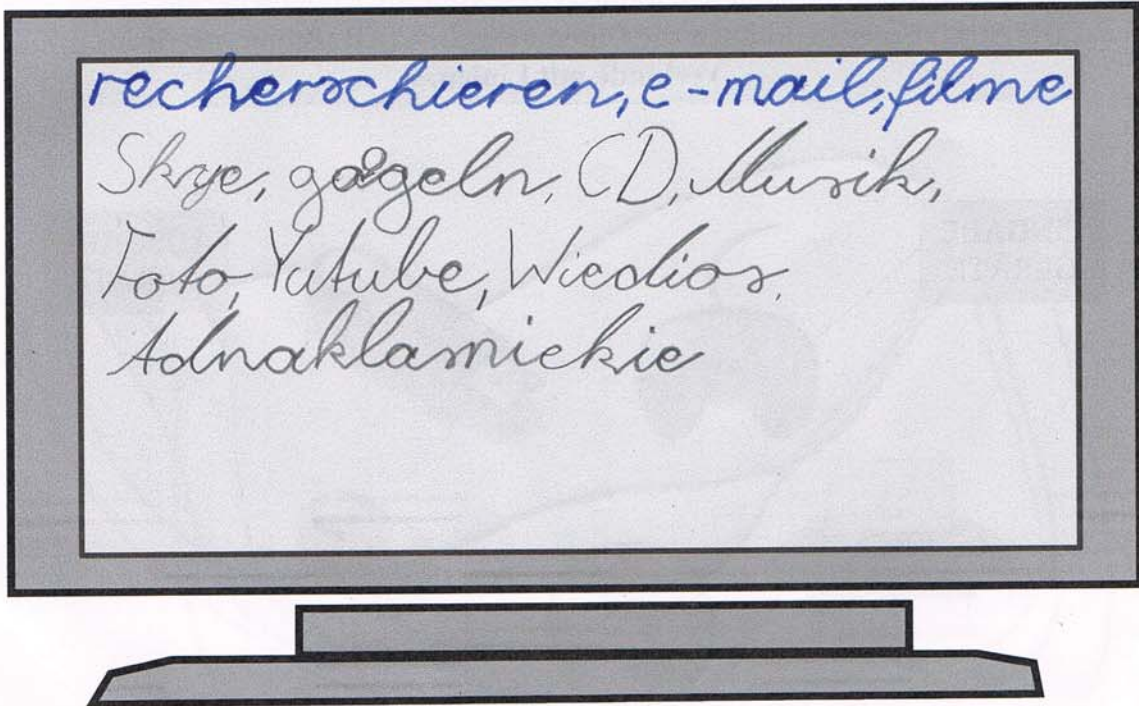 recherschieren, e-mail, filme
Skype, gogeln, CD, Musik,
Foto, Yutube, Wiedios,
Adnaklasniekie